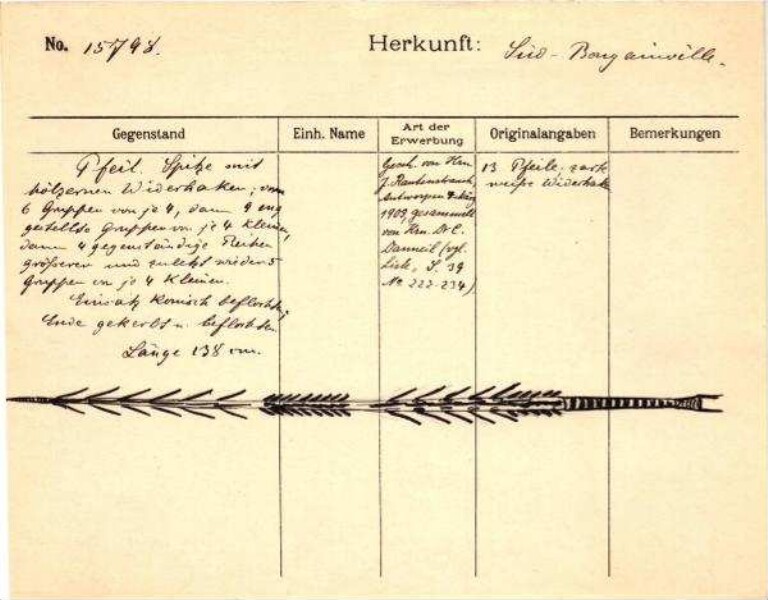 No. 15798. Herkunft: Süd-Bougainville.
Gegenstand
Einh. Name
Art der
Erwerbung
Originalangaben
Bemerkungen
Pfeil. Spitze mit
hölzernen Widerhaken; vorn
6 Gruppen von je 4, dann 9 eng
gestellte Gruppen von je 4 kleinen,
dann 4 gegenständige Reihen
größerer und zuletzt wieder 5
Gruppen von je 4 kleinen.
Einsatz konisch beflochten;
Ende gekerbt u. beflochten.
Länge 138 cm.
Gesch. von Hrn
J. Rautenstrauch,
Antwerpen
1903, gesammelt
von Hrn. Dr C.
Danneil (vgl.
Liste, S. 39
No 222-234)
13 Pfeile,
weiße Widerhak